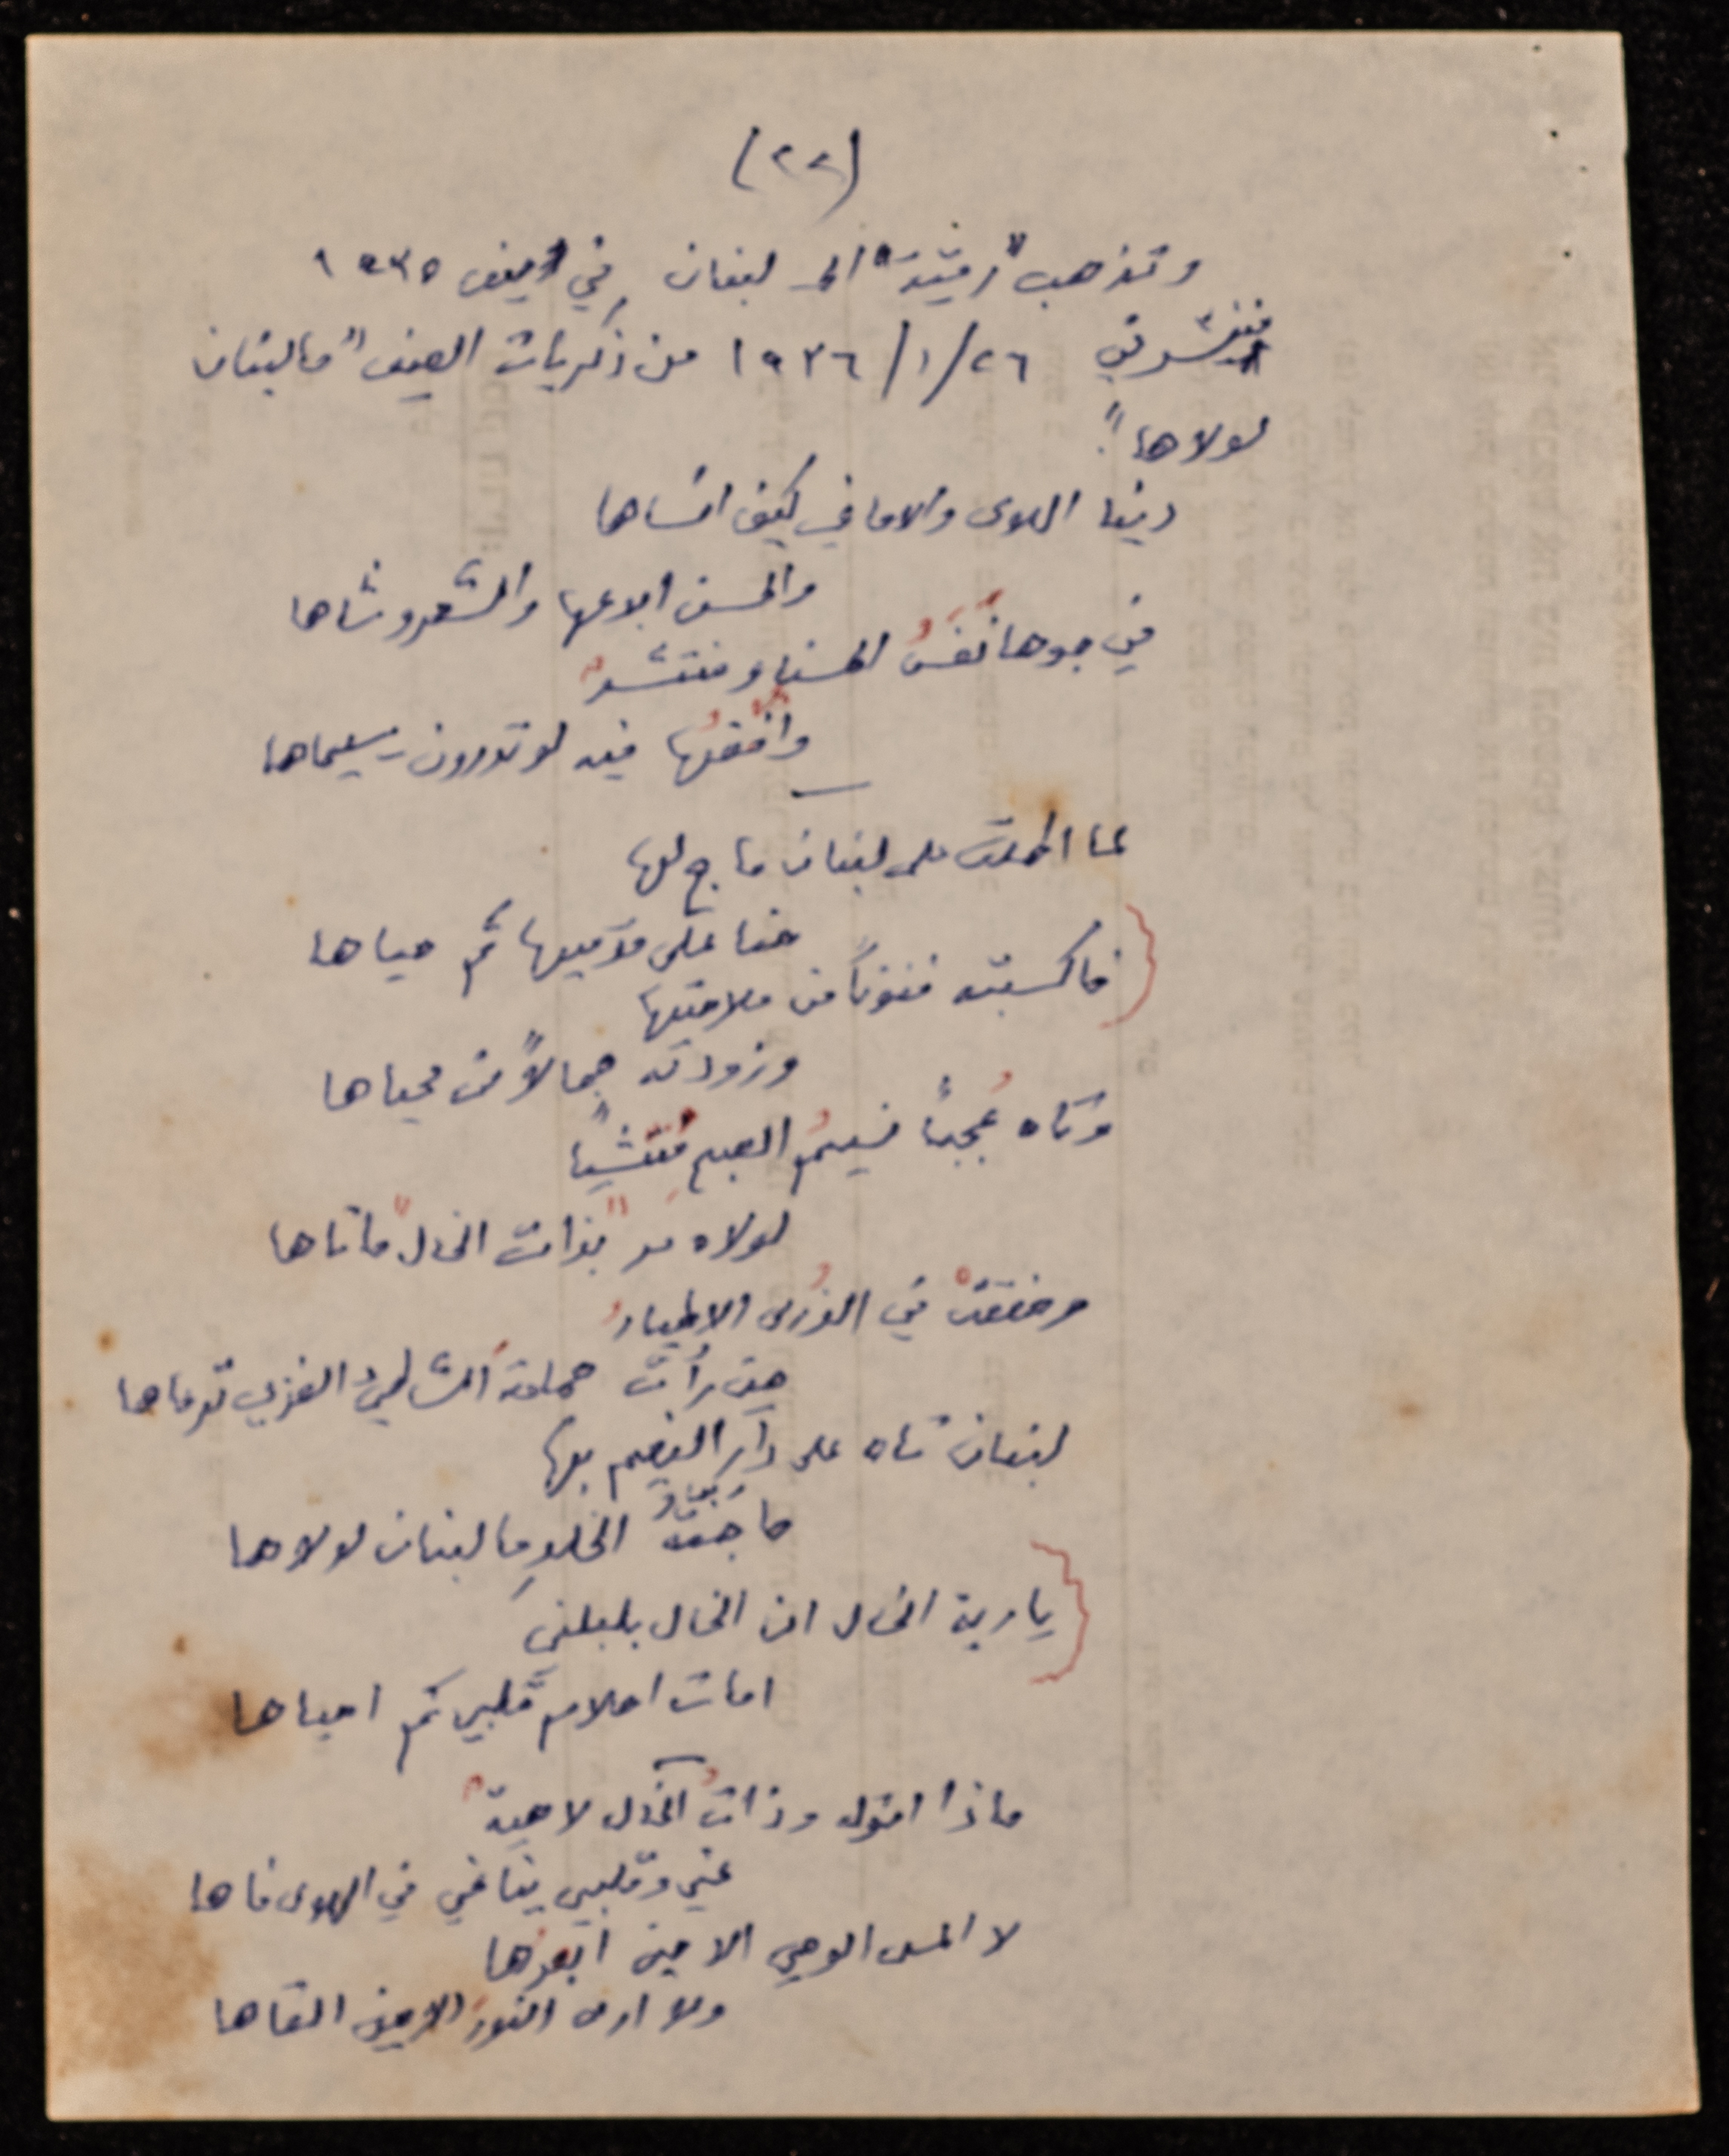 (٢٢)
وتذهب "رقية" الى لبنان في صيف ١٩٣٥
فننشر في ٢٦/١/١٩٣٦ من ذكريات الصيف "ما لبنان
لولاها".
دنيا الهوى والاماني كيف انساها
والحسن ابدعها والشعر وشاها
في جوها نَفَسُ الحسناء منتشرٌ
وأفقُها فيه لو تدرون سيماها
لما اطلت على لبنان ماج لها
حنا على قدميها ثم حياها
فاكسبته فنوناً من ملاحتها
وزودته جمالاً من محياها
وتاه عُجباً نسيمُ الصبح مُنتشياً
لولاه مر "بذات الخال" ما تاها
وصفقتْ في الذُرى الاطيارُ
حين رأت حمامةَ الشاطئ الغربي ترعاها
لبنان تاه على دار النعيم بها
ما جنةُ الخلدِ ما لبنان لولاها
يا ربة الخال ان الخال بلبلني
امات احلام قلبي ثم احياها
ماذا اقول وذاتُ الخال لاهيةٌ
عني وقلبي يناغي في الهوى فاها
لا المس الوحي الا حين ابصرُها
ولا ارى النورَ الا حين القاها